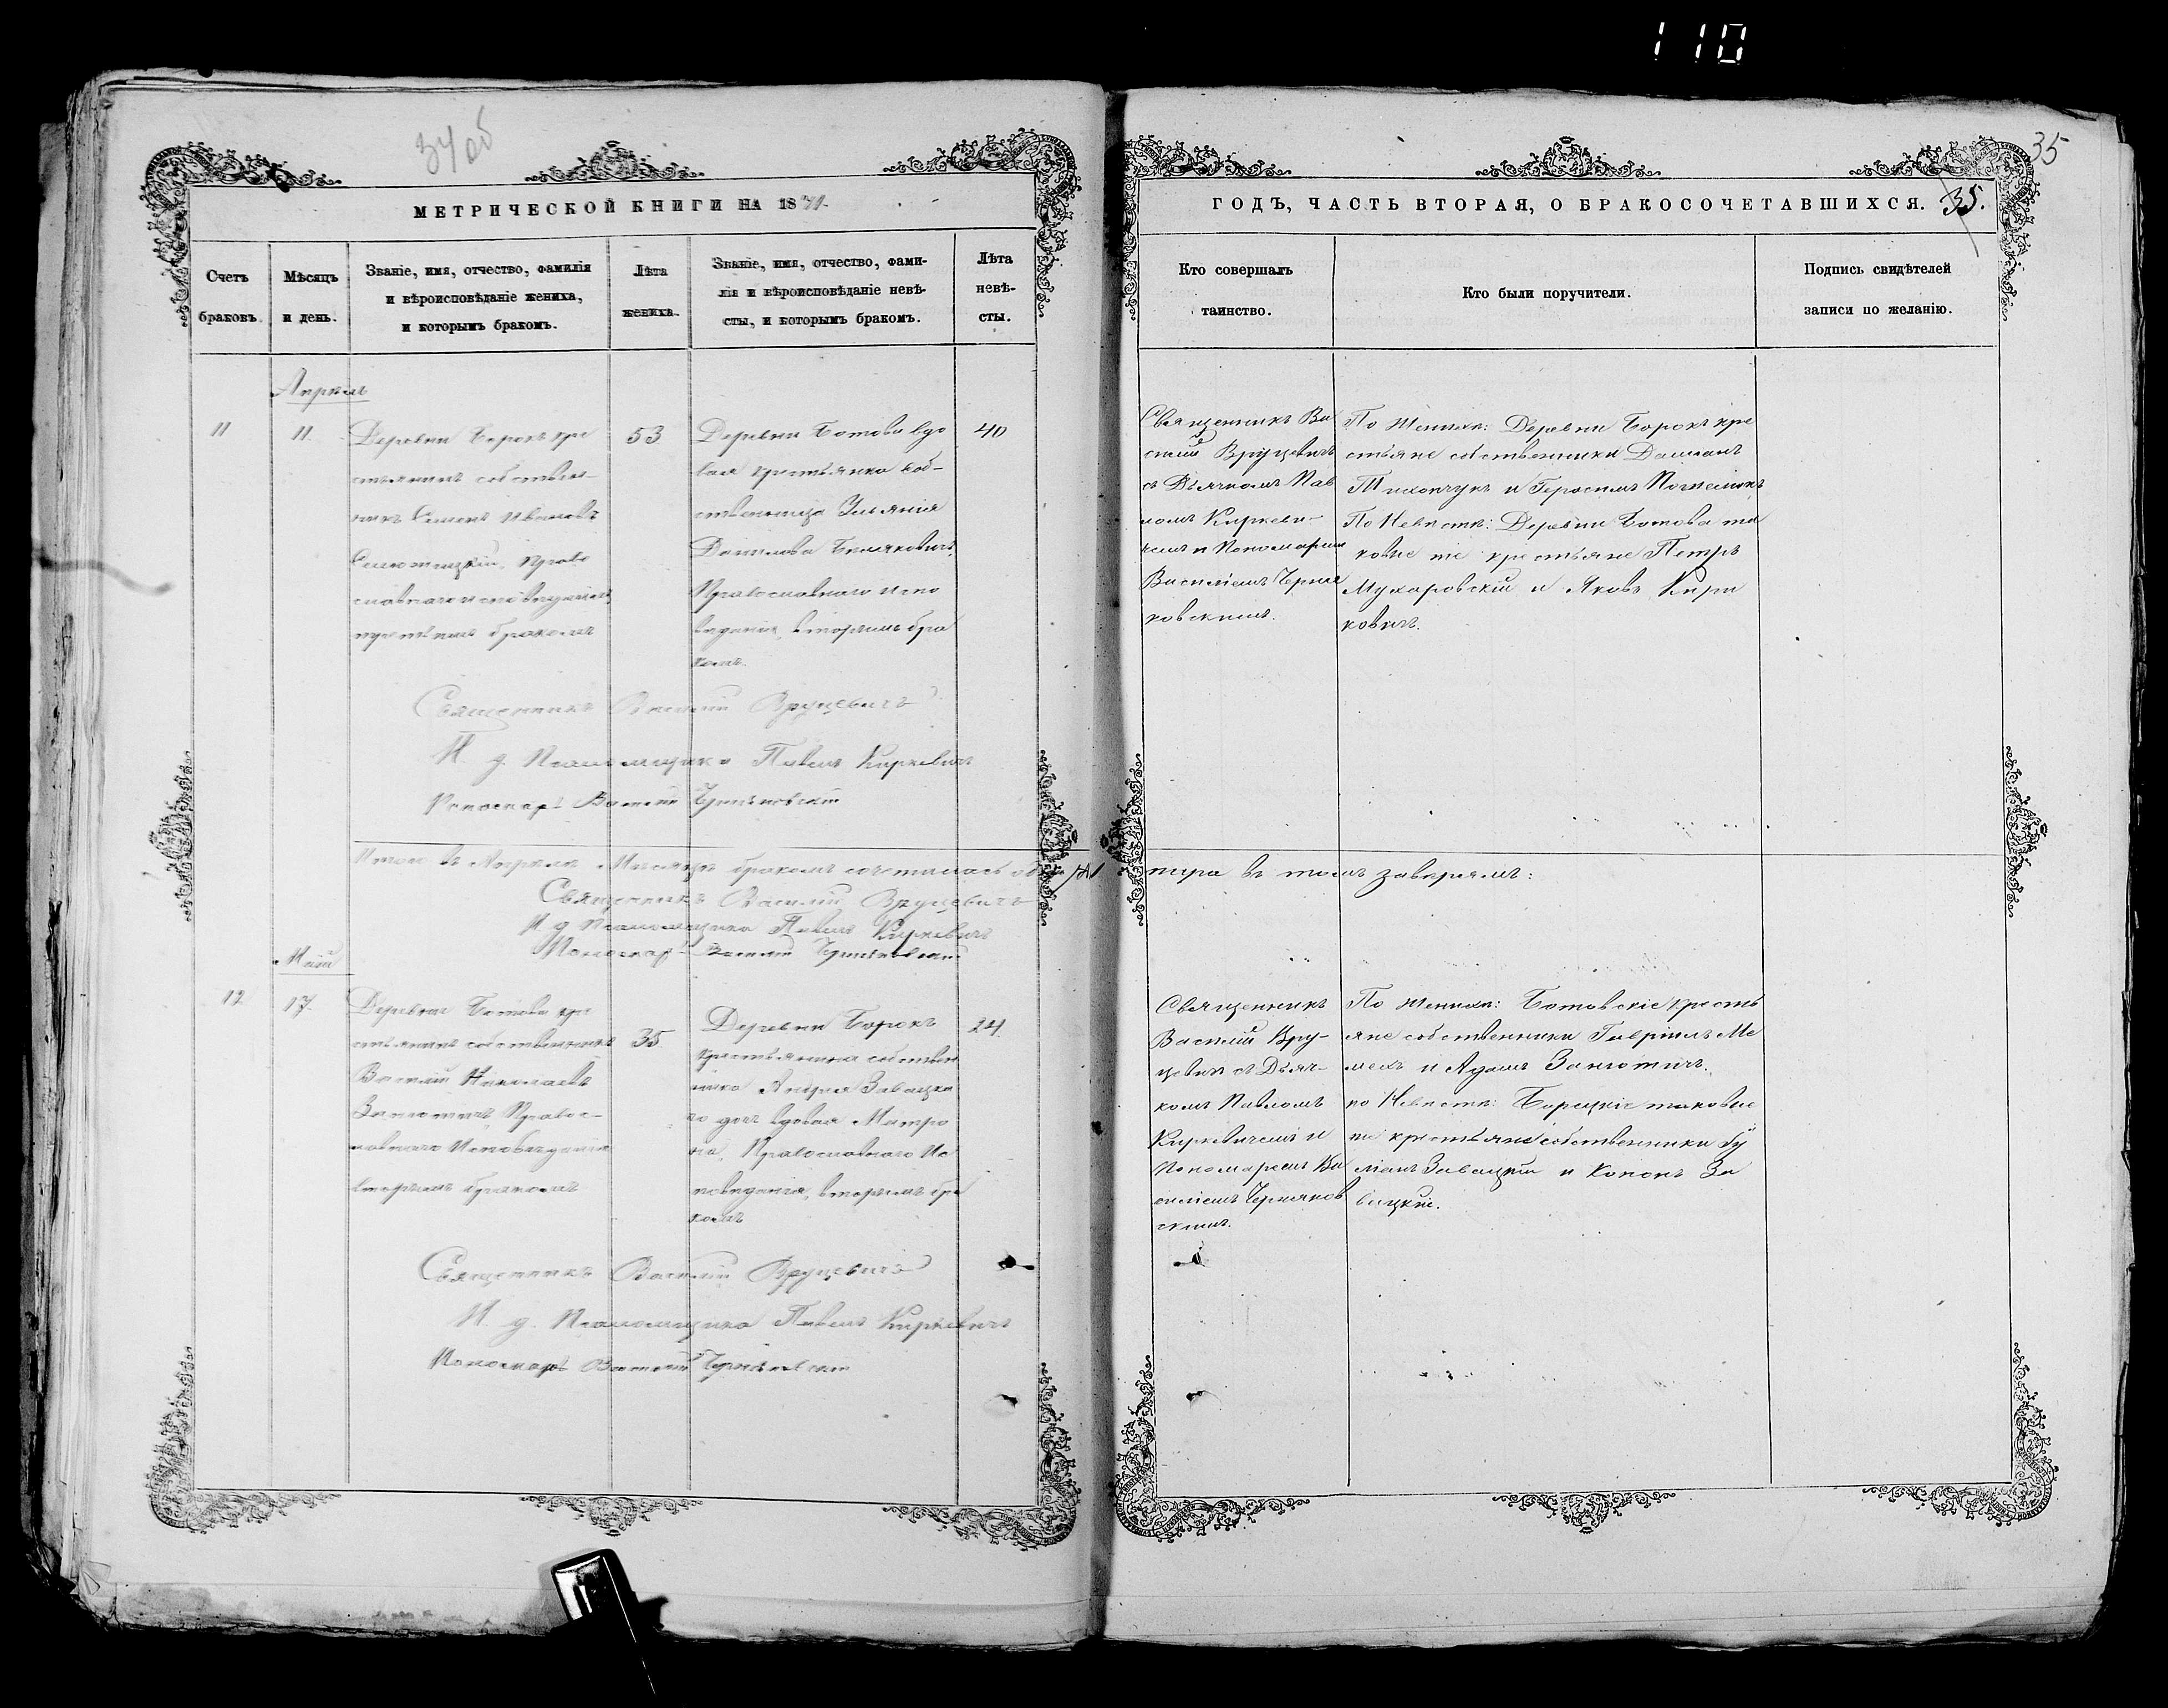 110
34об
35
МЕТРИЧЕСКОЙ КНИГИ НА 1871
ГОДЪ, ЧАСТЬ ВТОРАЯ, О БРАКОСОЧЕТАВШИХСЯ. 35.
Счетъ браковъ.
Мѣсяцъ и день.
Званіе, имя, отчество, фамилія
и вѣроисповѣданіе жениха,
и которымъ бракомъ.
Лѣта жениха.
Званіе, имя, отчество, фами-
лія и вѣроисповѣданіе невѣ-
сты, и которымъ бракомъ.
Лѣта невѣ-
сты.
Кто совершалъ
таинство.
Кто были поручители.
Подпись свидѣтелей
записи по желанію.
Апрѣль
11
11.
Деревни Борокъ кре
стьянинъ собствен-
никъ Семенъ Ивановъ
Право
славнаго исповѣданія,
третьимъ бракомъ
53
Деревни Ботова вдо
вая крестьянка соб-
ственница Ульянія
Данилова
Православнаго испо
вѣданія, вторымъ бра
комъ.
40
Священникъ Ва
силій Вруцевичъ
съ Дьячкомъ Пав
ломъ Киркеви-
чемъ и Пономаремъ
Василіемъ Черня
ковскимъ.
По Женихѣ: Деревни Борокъ кре
стьяне собственники Даміанъ
Тихончукъ и Герасимъ
По Невѣстѣ: Деревни Ботова та
ковые же крестьяне Петръ
Мухаровскій и Яковъ Кири
ковичъ.
Священникъ Василій Вруцевичъ
И. д. Псаломщика Павелъ Киркевичъ
Пономарь Василій Черняковскій
Итого въ Апрѣлѣ Мѣсяцѣ бракомъ сочеталась одна /1/ пара въ томъ завѣряемъ:
Священникъ Василій Вруцевичъ
И д Псаломщика Павелъ Киркевичъ
Пономарь Василій Черняковскій
Май
12
17.
Деревни Ботова кре
стьянинъ собственникъ
Василій Николаевъ
Занютичъ, Правос-
лавнаго Исповѣданія
вторымъ бракомъ
35
Деревни Борокъ
крестьянина собствен
ника Андрея Завацка
го дочь вдовая Матро
на, Православнаго Ис
повѣданія, вторымъ бра
комъ
24.
Священникъ
Василій Вру-
цевичъ съ Дьяч-
комъ Павломъ
Киркевичемъ и
Пономаремъ Ва
силіемъ Черняков
скимъ.
По Женихѣ: Ботовскіе кресть
яне собственники Гавріилъ Ме
лехъ и Адамъ Занютичъ.
по Невѣстѣ: Борецкіе таковые
же крестьяне собственники Гу
ліанъ Завацкій и Кононъ За
вацкіе.
Священникъ Василій Вруцевичъ
И. д. Псаломщика Павелъ Киркевичъ
Пономарь Василій Черняковскій